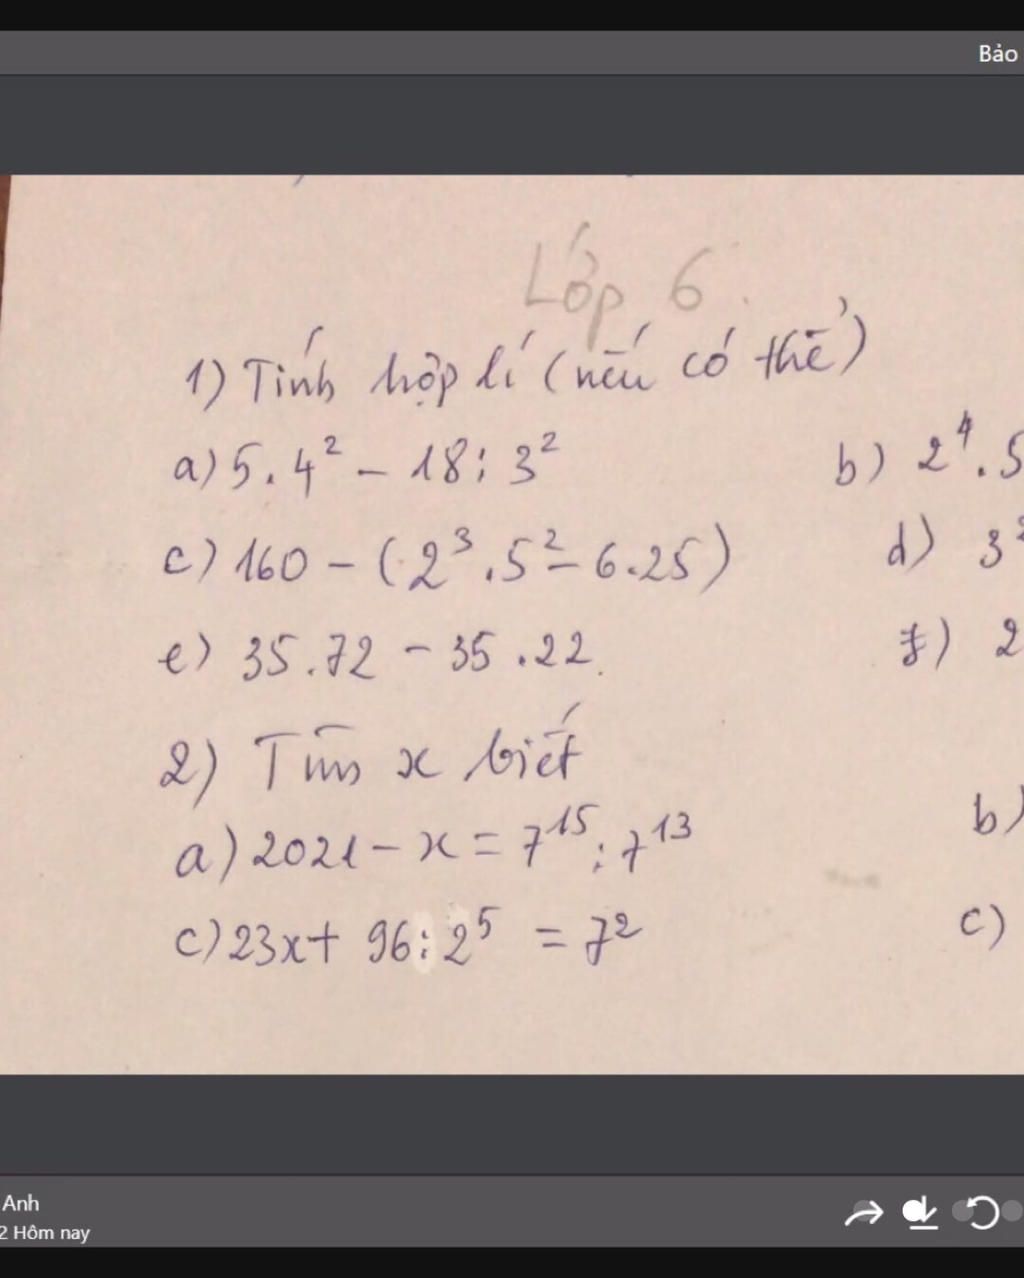 Bảo
Lớp 6
1) Tính hợp lí (nếu có thể)
a) 5.4² - 18 : 3²
b) 2⁴.5
c) 160 - (2³.5² - 6.25)
d) 3²
e) 35.72 - 35.22
f) 2
2) Tìm x biết
a) 2021 - x = 7¹⁵ : 7¹³
b)
c) 23x + 96 : 2⁵ = 7²
c)
Anh
2 Hôm nay